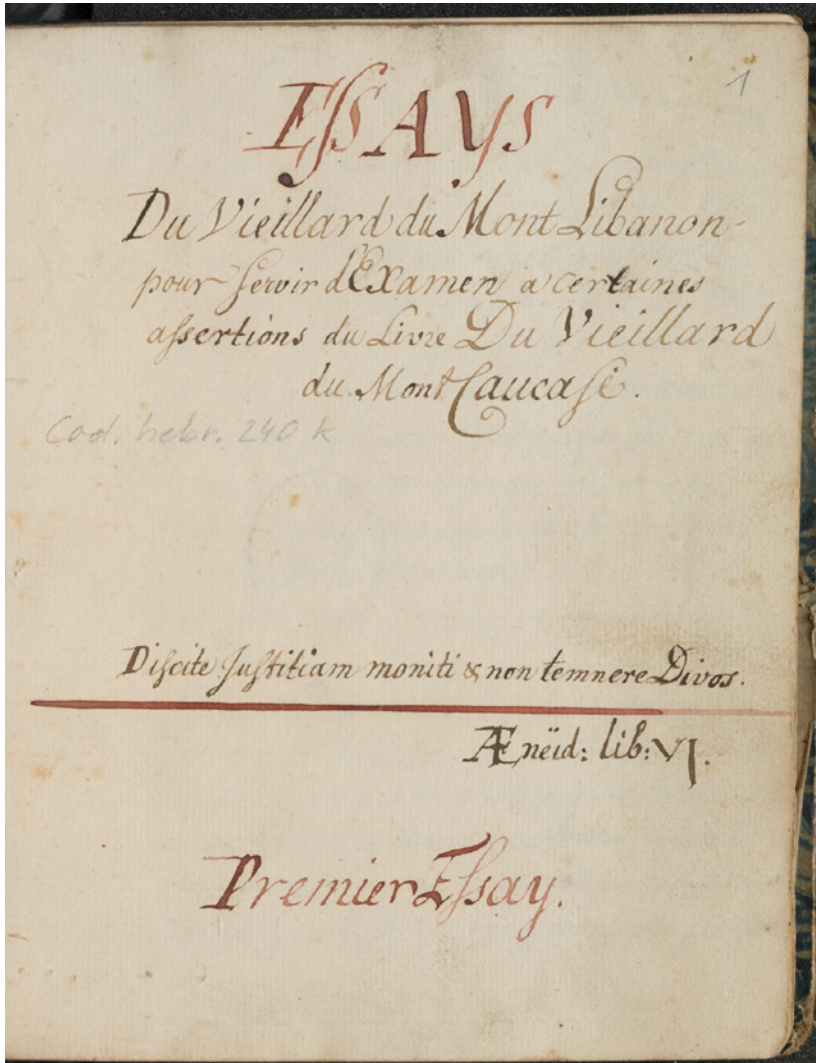 1
ESSAYS
Du Vieillard du Mont Libanon
pour servir d'Examen a certaines
assertions du Livre Du Vieillard
du Mont Caucase.
Cod. hebr. 240 k
Discite Justitiam moniti & non temnere Divos.
Ænëid: lib: VI.
Premier Essay.